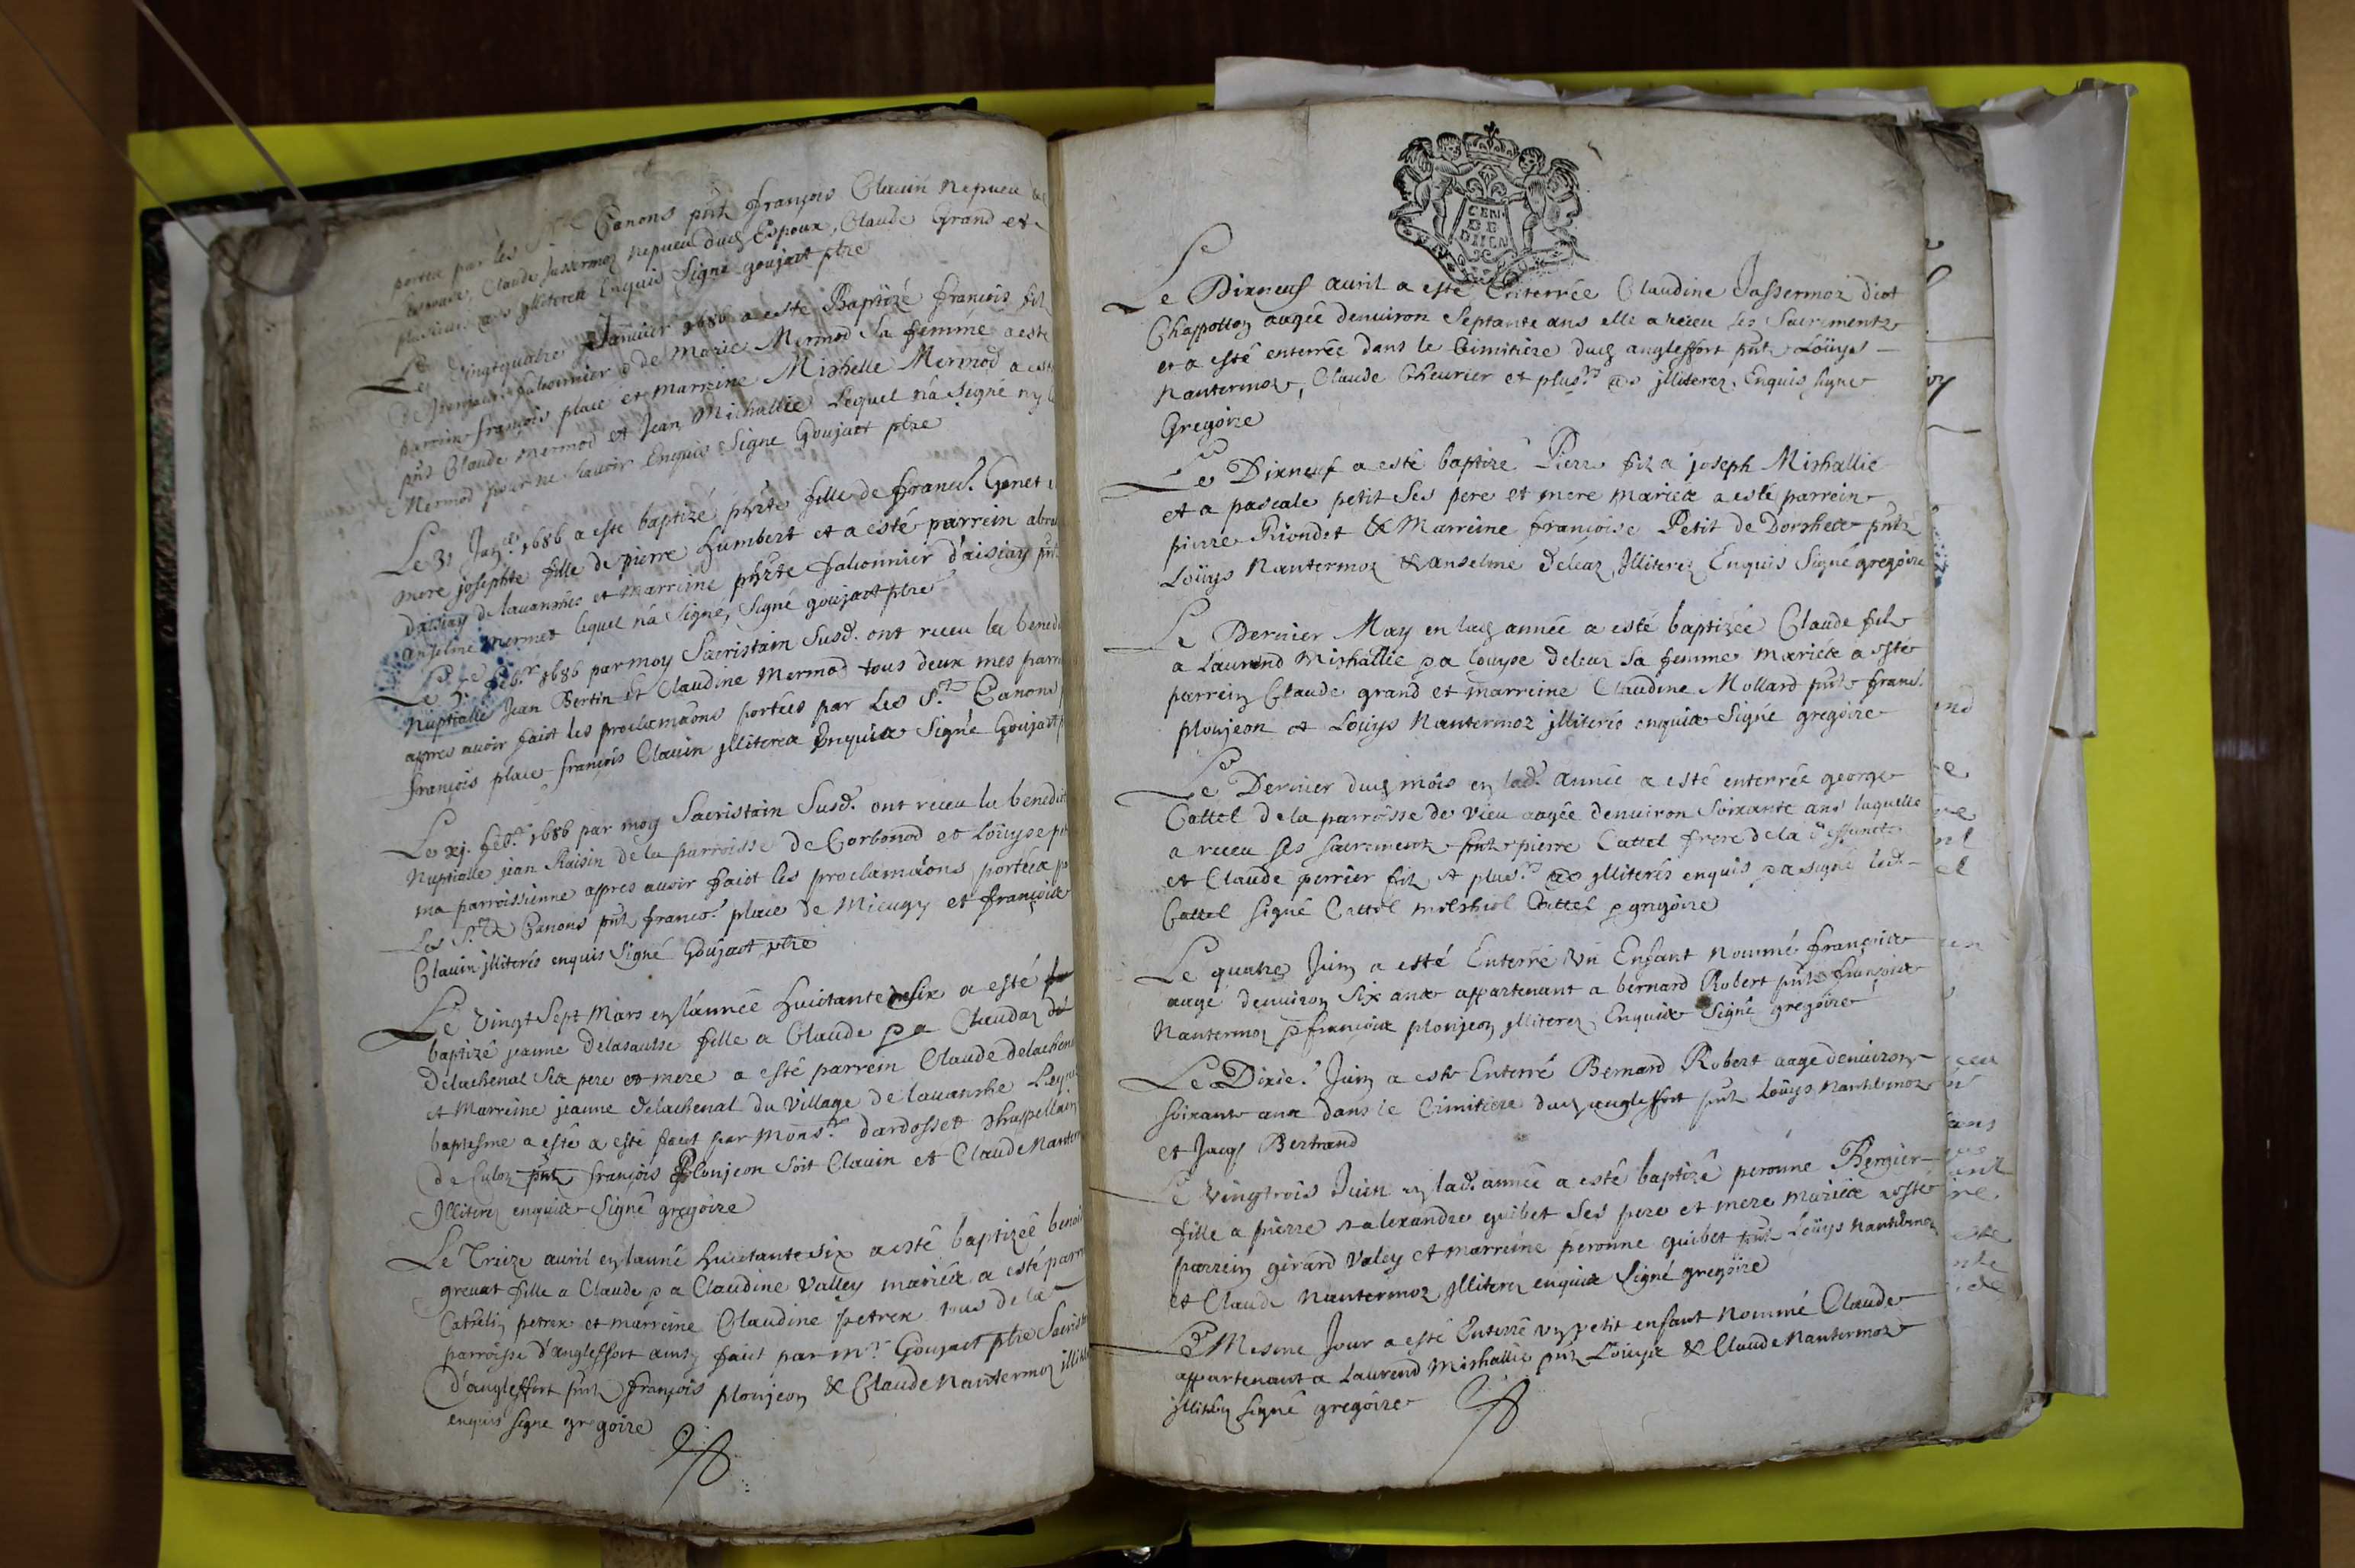 portée par les S.rs Canons pnt françois Clauin nepueu de
Claude Jassermoz nepueu dud Espoux, Claude Grand et
plusieurs aes jlliterez Enquis Signé goujact ptre
Le Vingtquatre Januier 1686 a esté Baptizé francois fil
falconnier & de Marie Mermod Sa femme a esté
parrein françois place et marreine Michelle Mermod a esté
pnt Claude Mermod et Jean Michallié Lequel n'a Signé ny
Mermod pour ne Sauoir Enquis Signe Goujact ptre
Le 31 Jan.er 1686 a esté baptizé phzte fille de franc.s Genet
mere josephte fille de pierre humbert et a esté parrein
daisiay de lauanches et marreine phzte falconnier d'aisiay pnt
anselme mermet lequel n'a Signé, Signé goujact ptre
Le feb.er 1686 par moy Sacristain Susd. ont receu la bened
Nuptialle Jean Bertin et Claudine Mermod tous deux mes parr
apres auoir faict les proclemaons portées par Les S.rs Canons
françois place françois Clauin jlliterez Enquis Signé Goujact
Le xj. feb.er 1686 par moy Sacristain Susd. ont receu la benedict
Nuptialle jean Raisin de la parroisse de Corbonod et Loüyse
ma parroissienne appres auoir faict les proclamaons portées p
Les S.rs Canons pnt franco.s place de Mieugy et françois
Clauin jlliterés enquis Signé Goujact ptre
Le Vingt Sept Mars en l'année huictante Six a esté
baptizé jeanne Delasausse fille a Claude & a Claudaz de
delachenal Ses pere et mere a esté parrein Claude delachen
et Marreine jeanne delachenal du Village de lauanche Lequ
baptesme a esté a esté faict par Mons.r dardosset Chappellain
de Culoz pnt françois Ploujeon Soit Clauin et Claude Nanter
Jlliterez enquis Signé gregoire
Le Treize auril en l'anné huictante six a esté baptizée benoi
greuat fille a Claude & a Claudine Valley mariés a esté parr
Cathelin petrex et marreine Claudine petrex tous de la
parroisse d'angleffort ainsy faict par m.r Goujact ptre Sacrist
d'angleffort pnt françois ploujeon & Claude Nantermoz jllit
enquis signe gregoire
CEN
DE
DIION
Le Dixneuf auril a esté Enterrée Claudine Jassermoz dict
Chappollon aagée denuiron Septante ans elle a receu ses Sacrements
et a esté enterrée dans le Cimitiere dud angleffort pnt Loüys
Nantermoz, Claude Cheurier et plus.rs aes jlliterez Enquis signe
Gregoire
Le Dixneuf a esté baptizé Pierre filz a joseph Mishallié
et a pascale petit Ses pere et mere mariés a esté parrein
pierre Riondet & Marreine françoise Petit de Dorshes pnt
Loüys Nantermoz & anselme deleaz Jlliterez Enquis Signé gregoire
Le Dernier May en lad année a esté baptizée Claude filz
a Laurend Mishallie & a louyse deleaz sa femme mariés a esté
parrein Claude grand et marreine Claudine Mollard pnt franc.s
ploujeon et Loüys Nantermoz jlliterés enquis Signé gregoire
Le Dernier dud mois en lad. année a esté enterrée george
Cattel de la parroisse de Vieu aagée denuiron Soixante ans laquelle
a receu ses sacrements pnt pierre Cattel frere de la deffuncte
et Claude perrier filz et plus.rs aes jlliterés enquis & a signé led.
Cattel signé Cattel mitshiel Cattel & gregoire
Le quatre Juin a esté Enterré Vn Enfant nommé françois
aagé denuiron Six ans appartenant a bernard Robert pnt françois
Nantermoz & françois ploujeon jlliterez Enquis Signé gregoire
Le Dixie.e Juin a esté Enterré Bernard Robert aage denuiron
Soixante ans dans le Cimitiere dud angleffort pnt Loüys Nantermoz
et Jacq Bertrand
Le Vingtrois Juin en lad. année a esté baptizé peronne Bernier
fille a pierre et alexandre guibet Ses pere et mere mariés a esté
parrein girard Valey et marreine peronne guibet pnt Loüys Nantermoz
et Claude Nantermoz Jlliterez enquis Signé gregoire
Le Mesme Jour a esté Enterré vn petit enfant nommé Claude
appartenant a Laurend Mishallie pnt Loüys & Claude Nantermoz
jlliterez signé gregoire